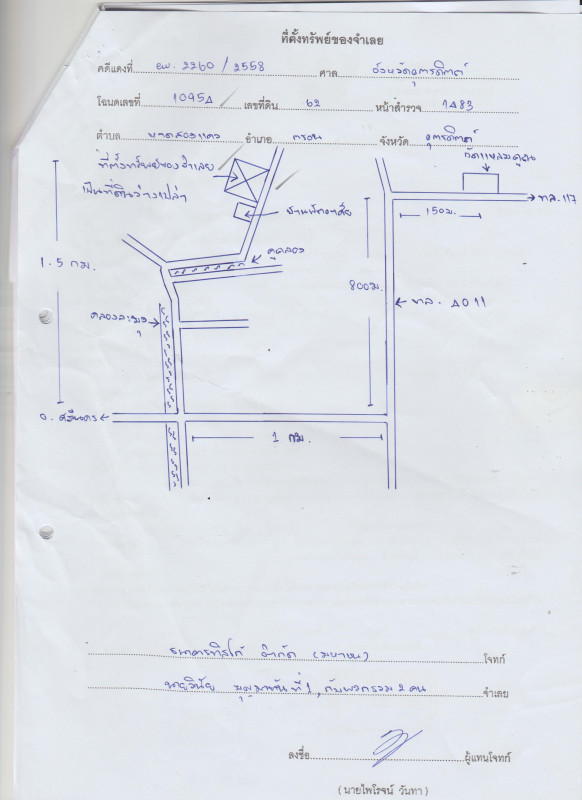 ที่ตั้งทรัพย์ของจำเลย
คดีแดงที่ ผบ. 2260 / 2558 ศาล จังหวัดอุตรดิตถ์
โฉนดเลขที่ 10954 เลขที่ดิน 62 หน้าสำรวจ 1483
ตำบล หาดสองแคว อำเภอ ตรอน จังหวัด อุตรดิตถ์
ที่ตั้งทรัพย์ของจำเลย
เป็นที่ดินว่างเปล่า
บ้านพักอาศัย
วัดแหลมคูณ
ทล. 117
150 ม.
คูคลอง
1.5 กม.
800 ม.
ทล. 4011
คลองละมุ
อ. ศรีนคร
1 กม.
ธนาคารทิสโก้ จำกัด (มหาชน) โจทก์
นายวินัย ที่ 1, กับพวกรวม 2 คน จำเลย
ลงชื่อ ผู้แทนโจทก์
(นายไพโรจน์ วันทา)